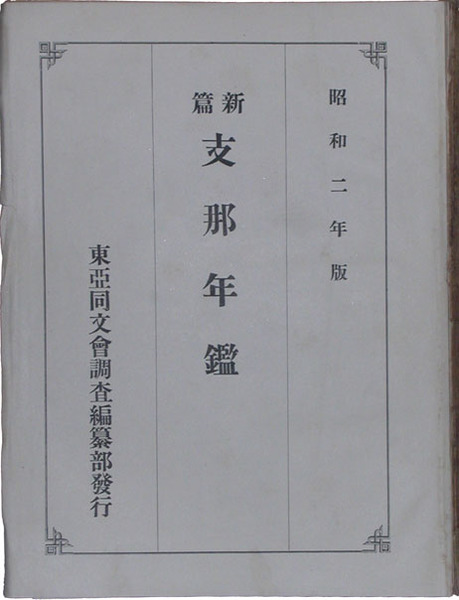 昭和二年版
新篇支那年鑑
東亞同文會調査編纂部發行